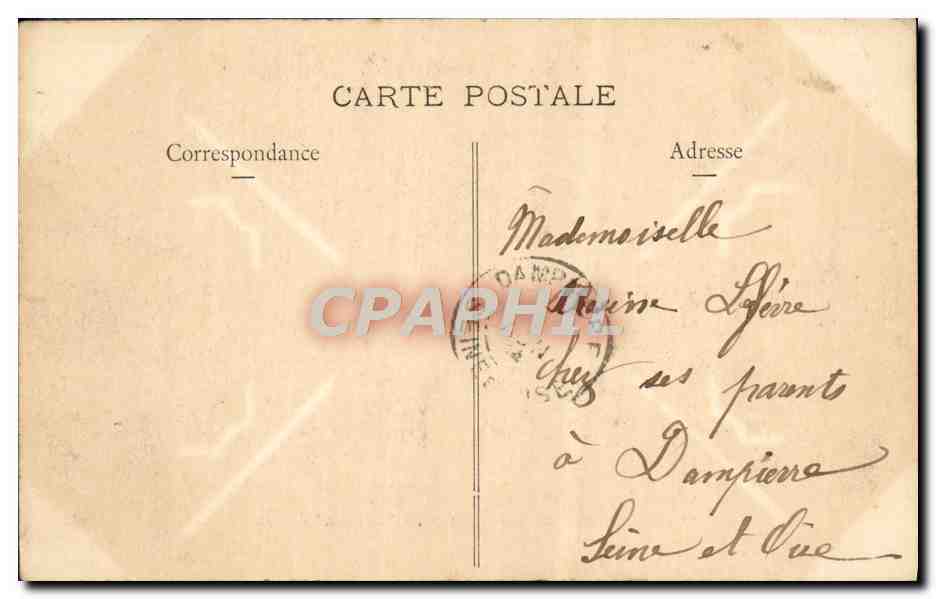 CARTE POSTALE
Correspondance
Adresse
Mademoiselle
Lefèvre
chez ses parents
à Dampierre
Seine et Oise
CPAPHIL
DAMPIERRE
SEINE